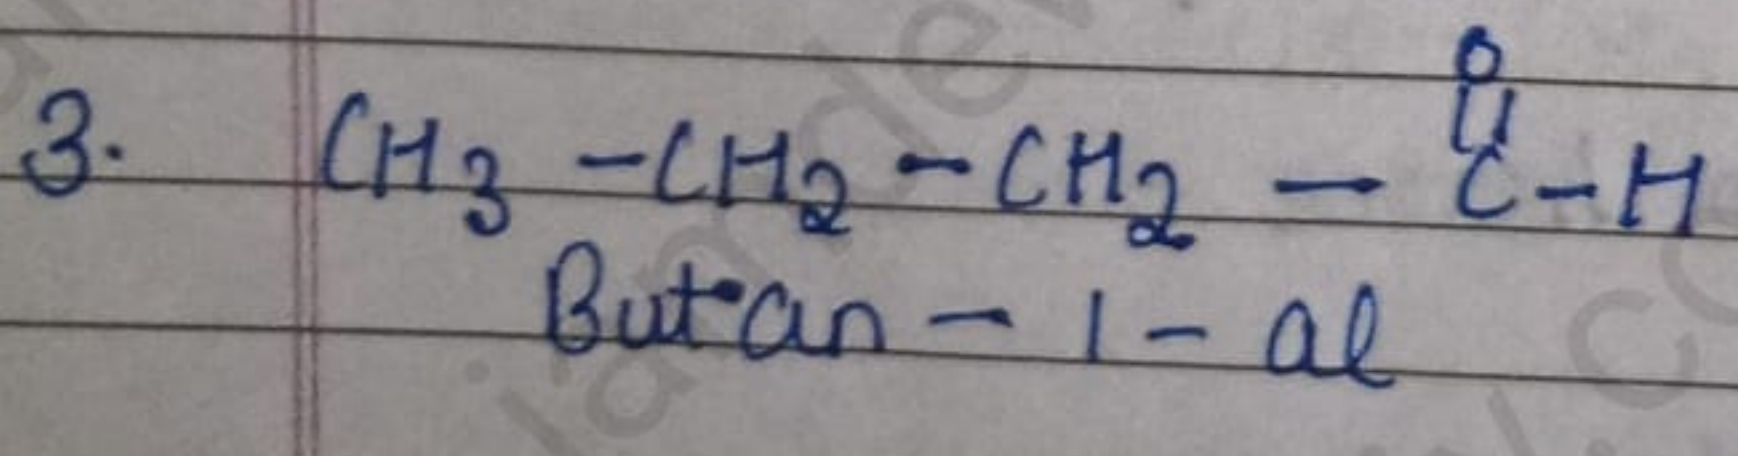 O
||
3. CH3 - CH2 - CH2 - C - H
Butan - 1 - al